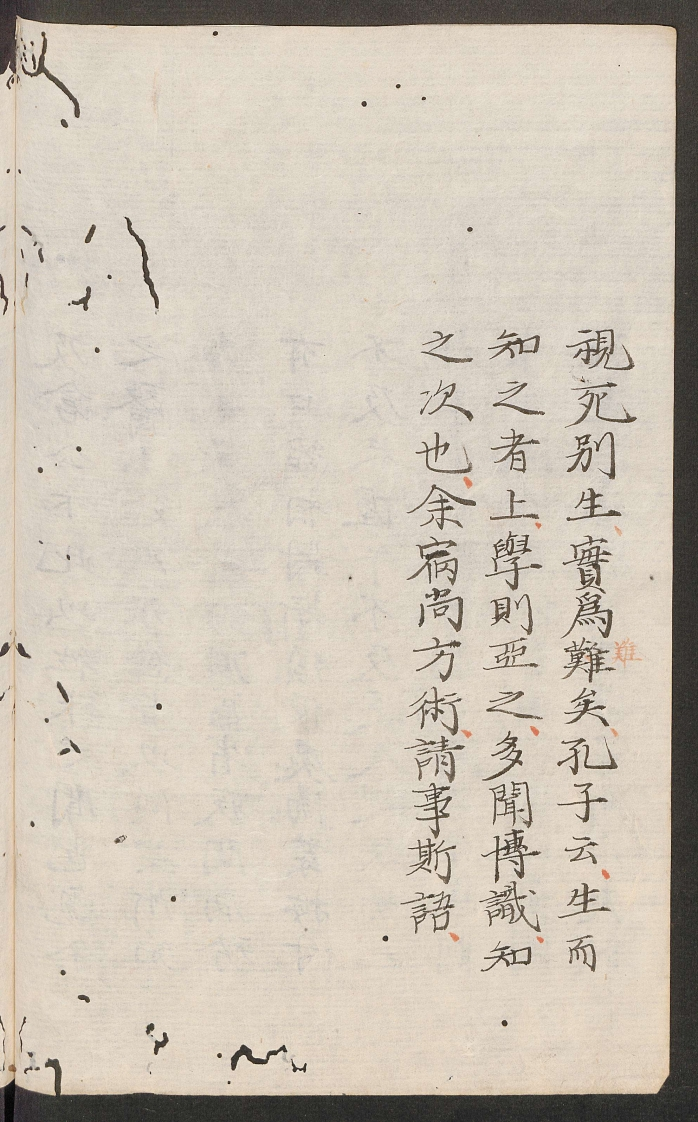 視死別生實爲難矣孔子云生而
難
知之者上學則亞之多聞博識知
之次也余宿尚方術請事斯語